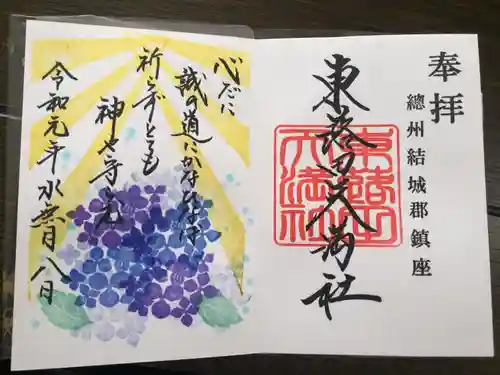 奉拝
總州結城郡鎮座
東蕗田天満社
心だに
誠の道にかなひなば
祈らずとても
神や守らん
令和元年水無月八日